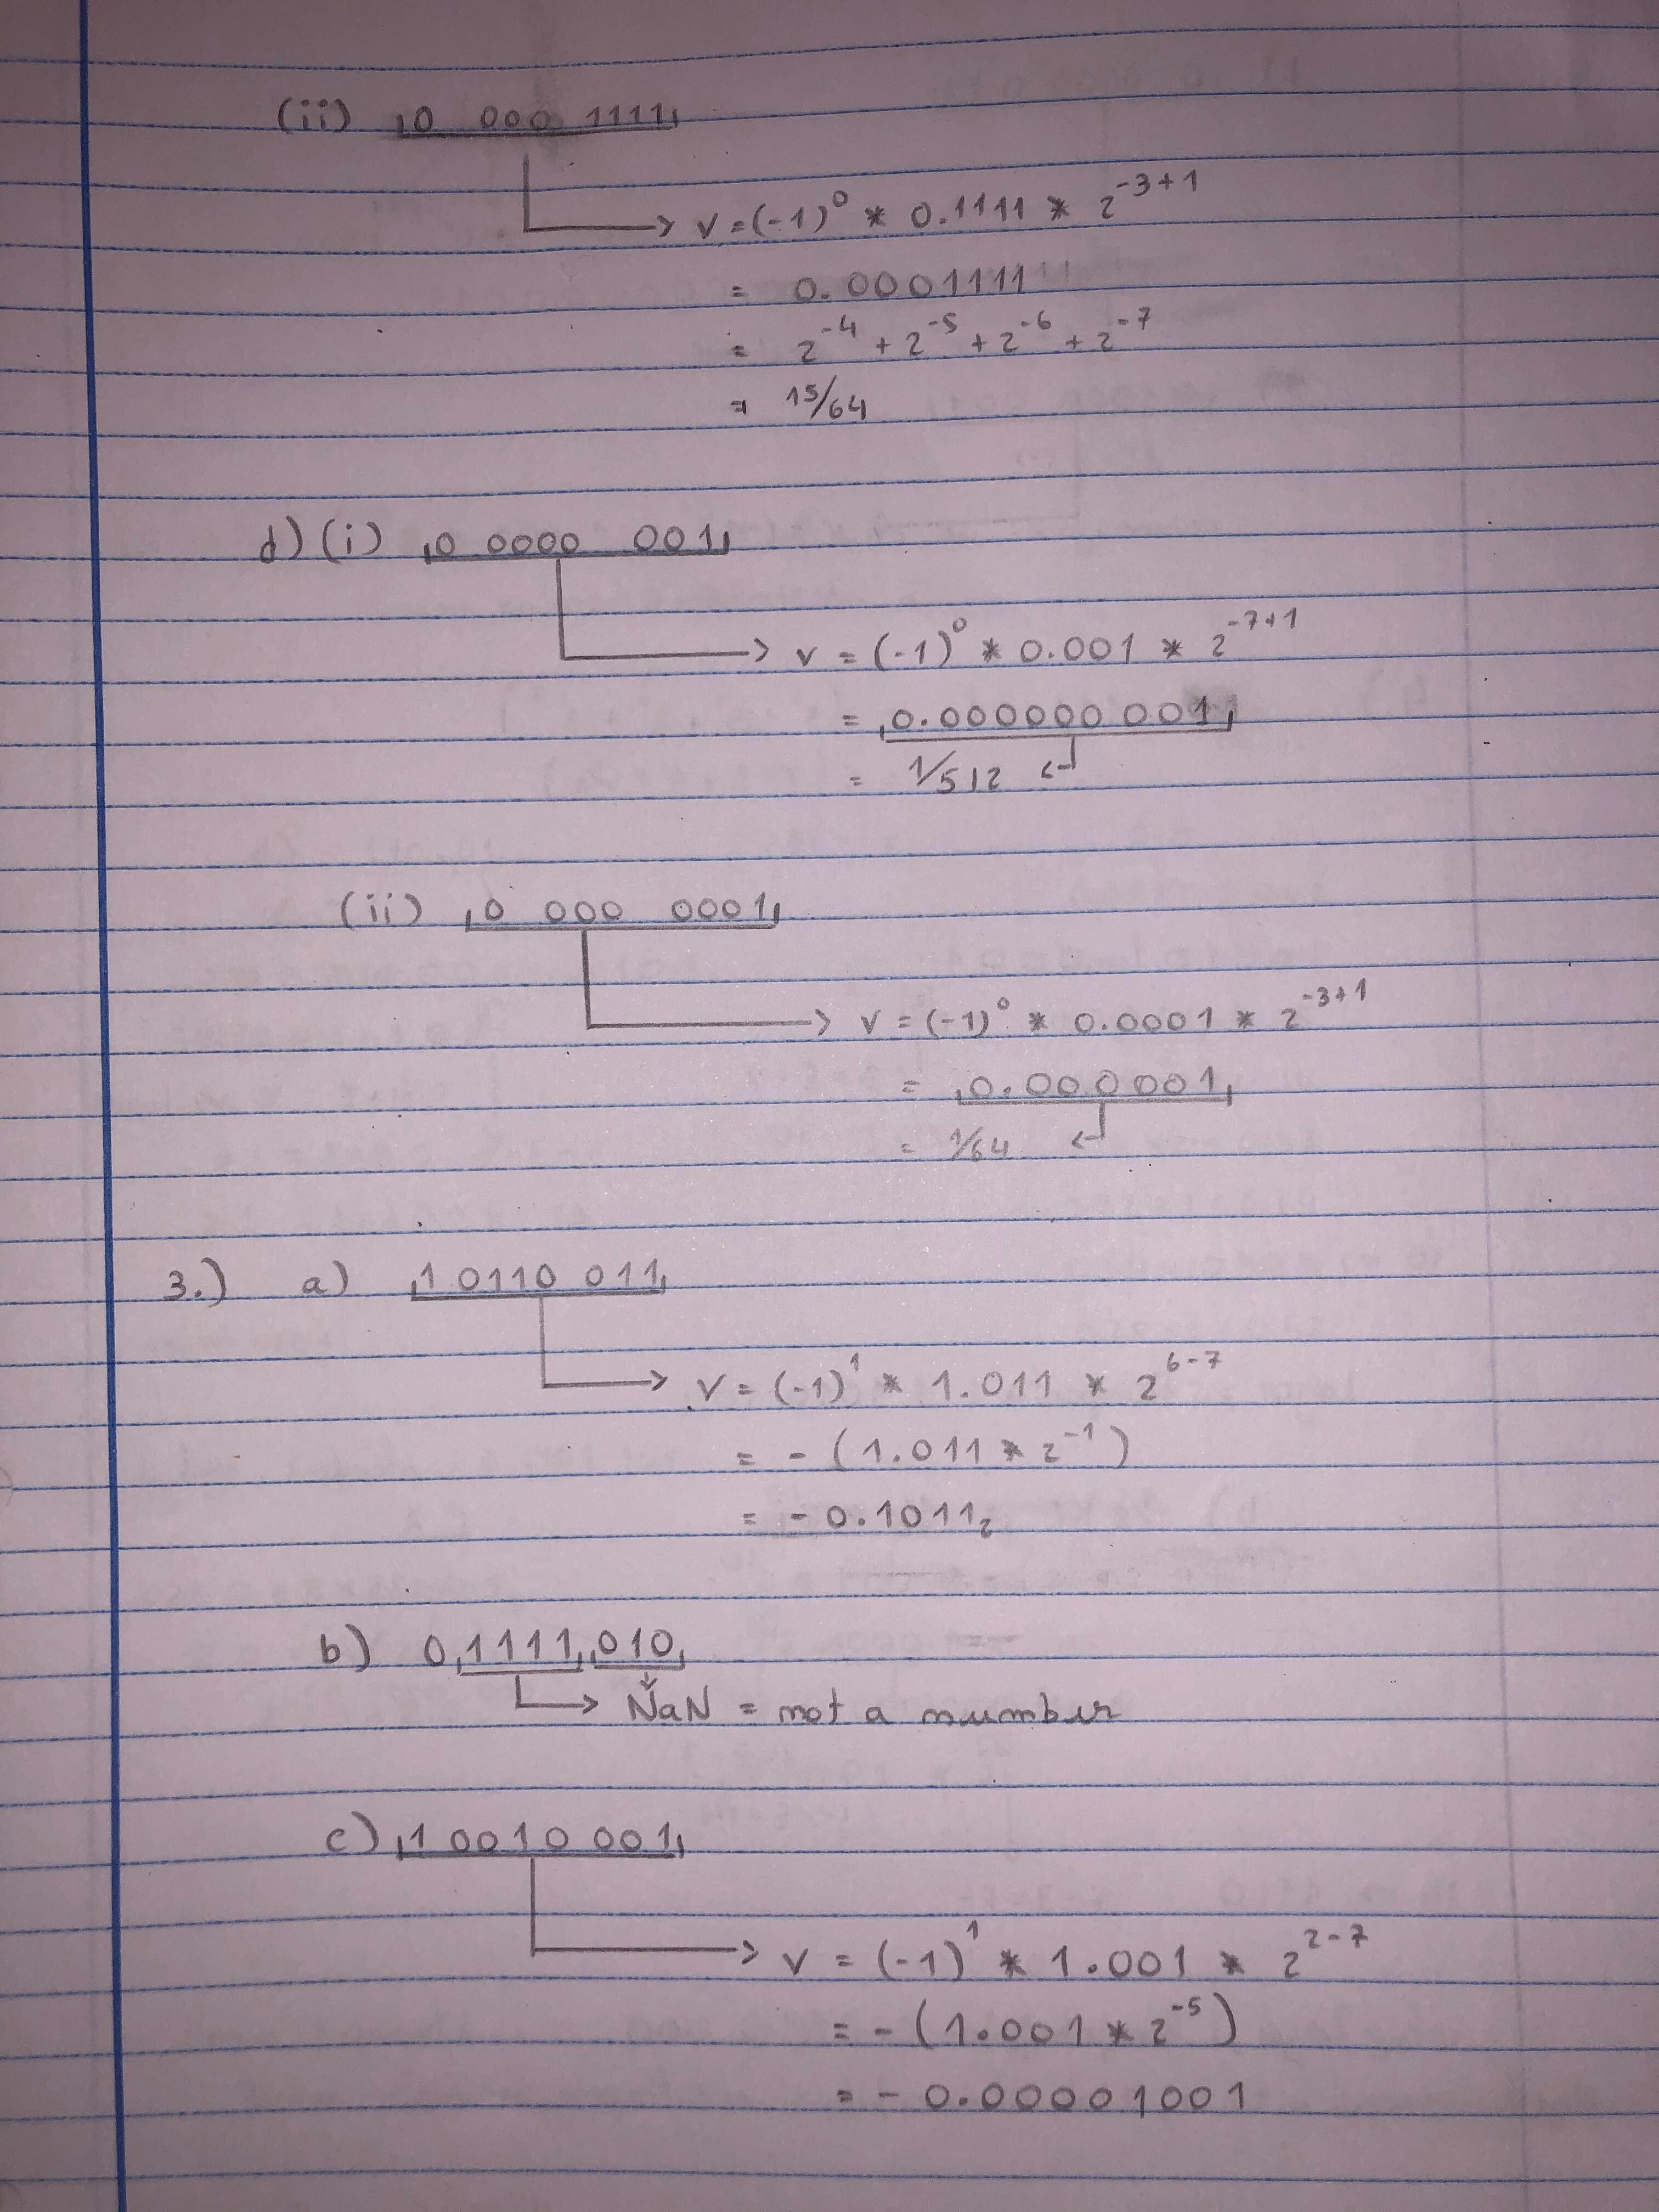 (ii) 0 000 1111
→ v = (-1)⁰ * 0.1111 * 2⁻³⁺¹
= 0.0001111
= 2⁻⁴ + 2⁻⁵ + 2⁻⁶ + 2⁻⁷
= 15/64
d) (i) 0 0000 001
→ v = (-1)⁰ * 0.001 * 2⁻⁷⁺¹
= 0.000000 001
= 1/512 ↵
(ii) 0 000 0001
→ v = (-1)⁰ * 0.0001 * 2⁻³⁺¹
= 0.000001
= 1/64 ↵
3.) a) 1 0110 011
→ v = (-1)¹ * 1.011 * 2⁶⁻⁷
= - (1.011 * 2⁻¹)
= - 0.1011₂
b) 0 1111 010
→ NaN = not a number
c) 1 0010 001
→ v = (-1)¹ * 1.001 * 2²⁻⁷
= - (1.001 * 2⁻⁵)
= - 0.00001001